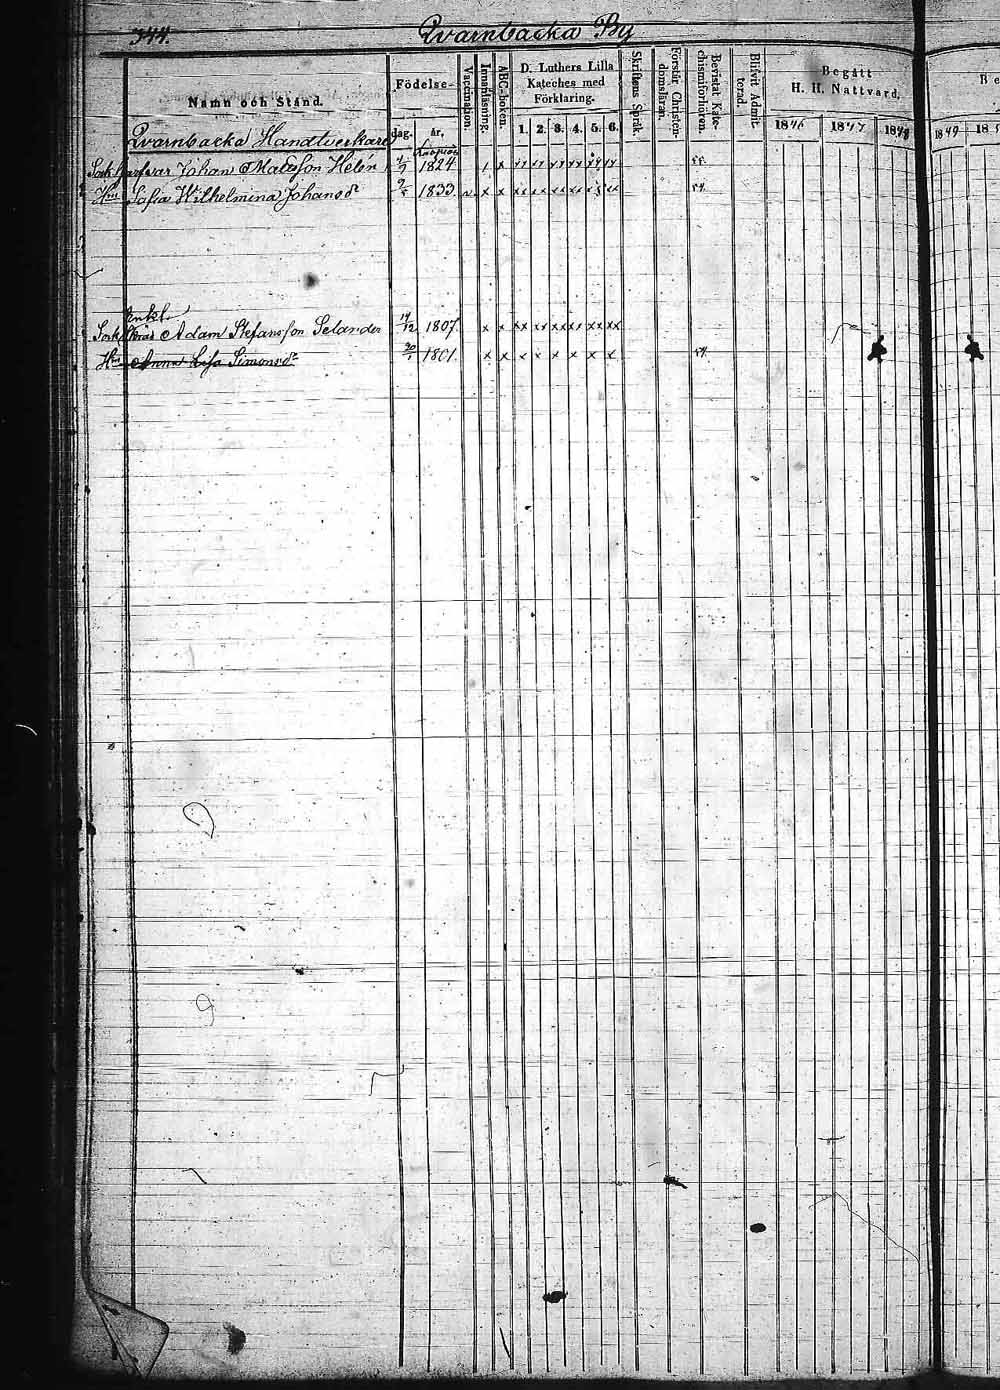 344.
Qvarnbacka By
Namn och Stånd.
Födelse-
dag. år.
Vaccination.
Innanläsning.
ABC-boken.
D. Luthers Lilla
Kateches med
Förklaring.
1. 2. 3. 4. 5. 6.
Skriftens Språk.
Förstår Christen-
domsläran.
Bevistat Kate-
chismiförhören.
Blifvit Admit-
terad.
Begått
H. H. Nattvard.
1846 1847 1848
1849 185
Be
Qvarnbacka Handtverkare
Johan Matsson Helén 1824 x x xx xx xx xx
Hu Sofia Wilhelmina Johansdr 1833. v. x x xx xx xx xx 54.
Enkl.
Adam Stefansson Selander 14/12 1807. x x xx xx xx xx xx xx
Hu Anna Lisa Simonsdr 1801. x x x x x x x x 54.